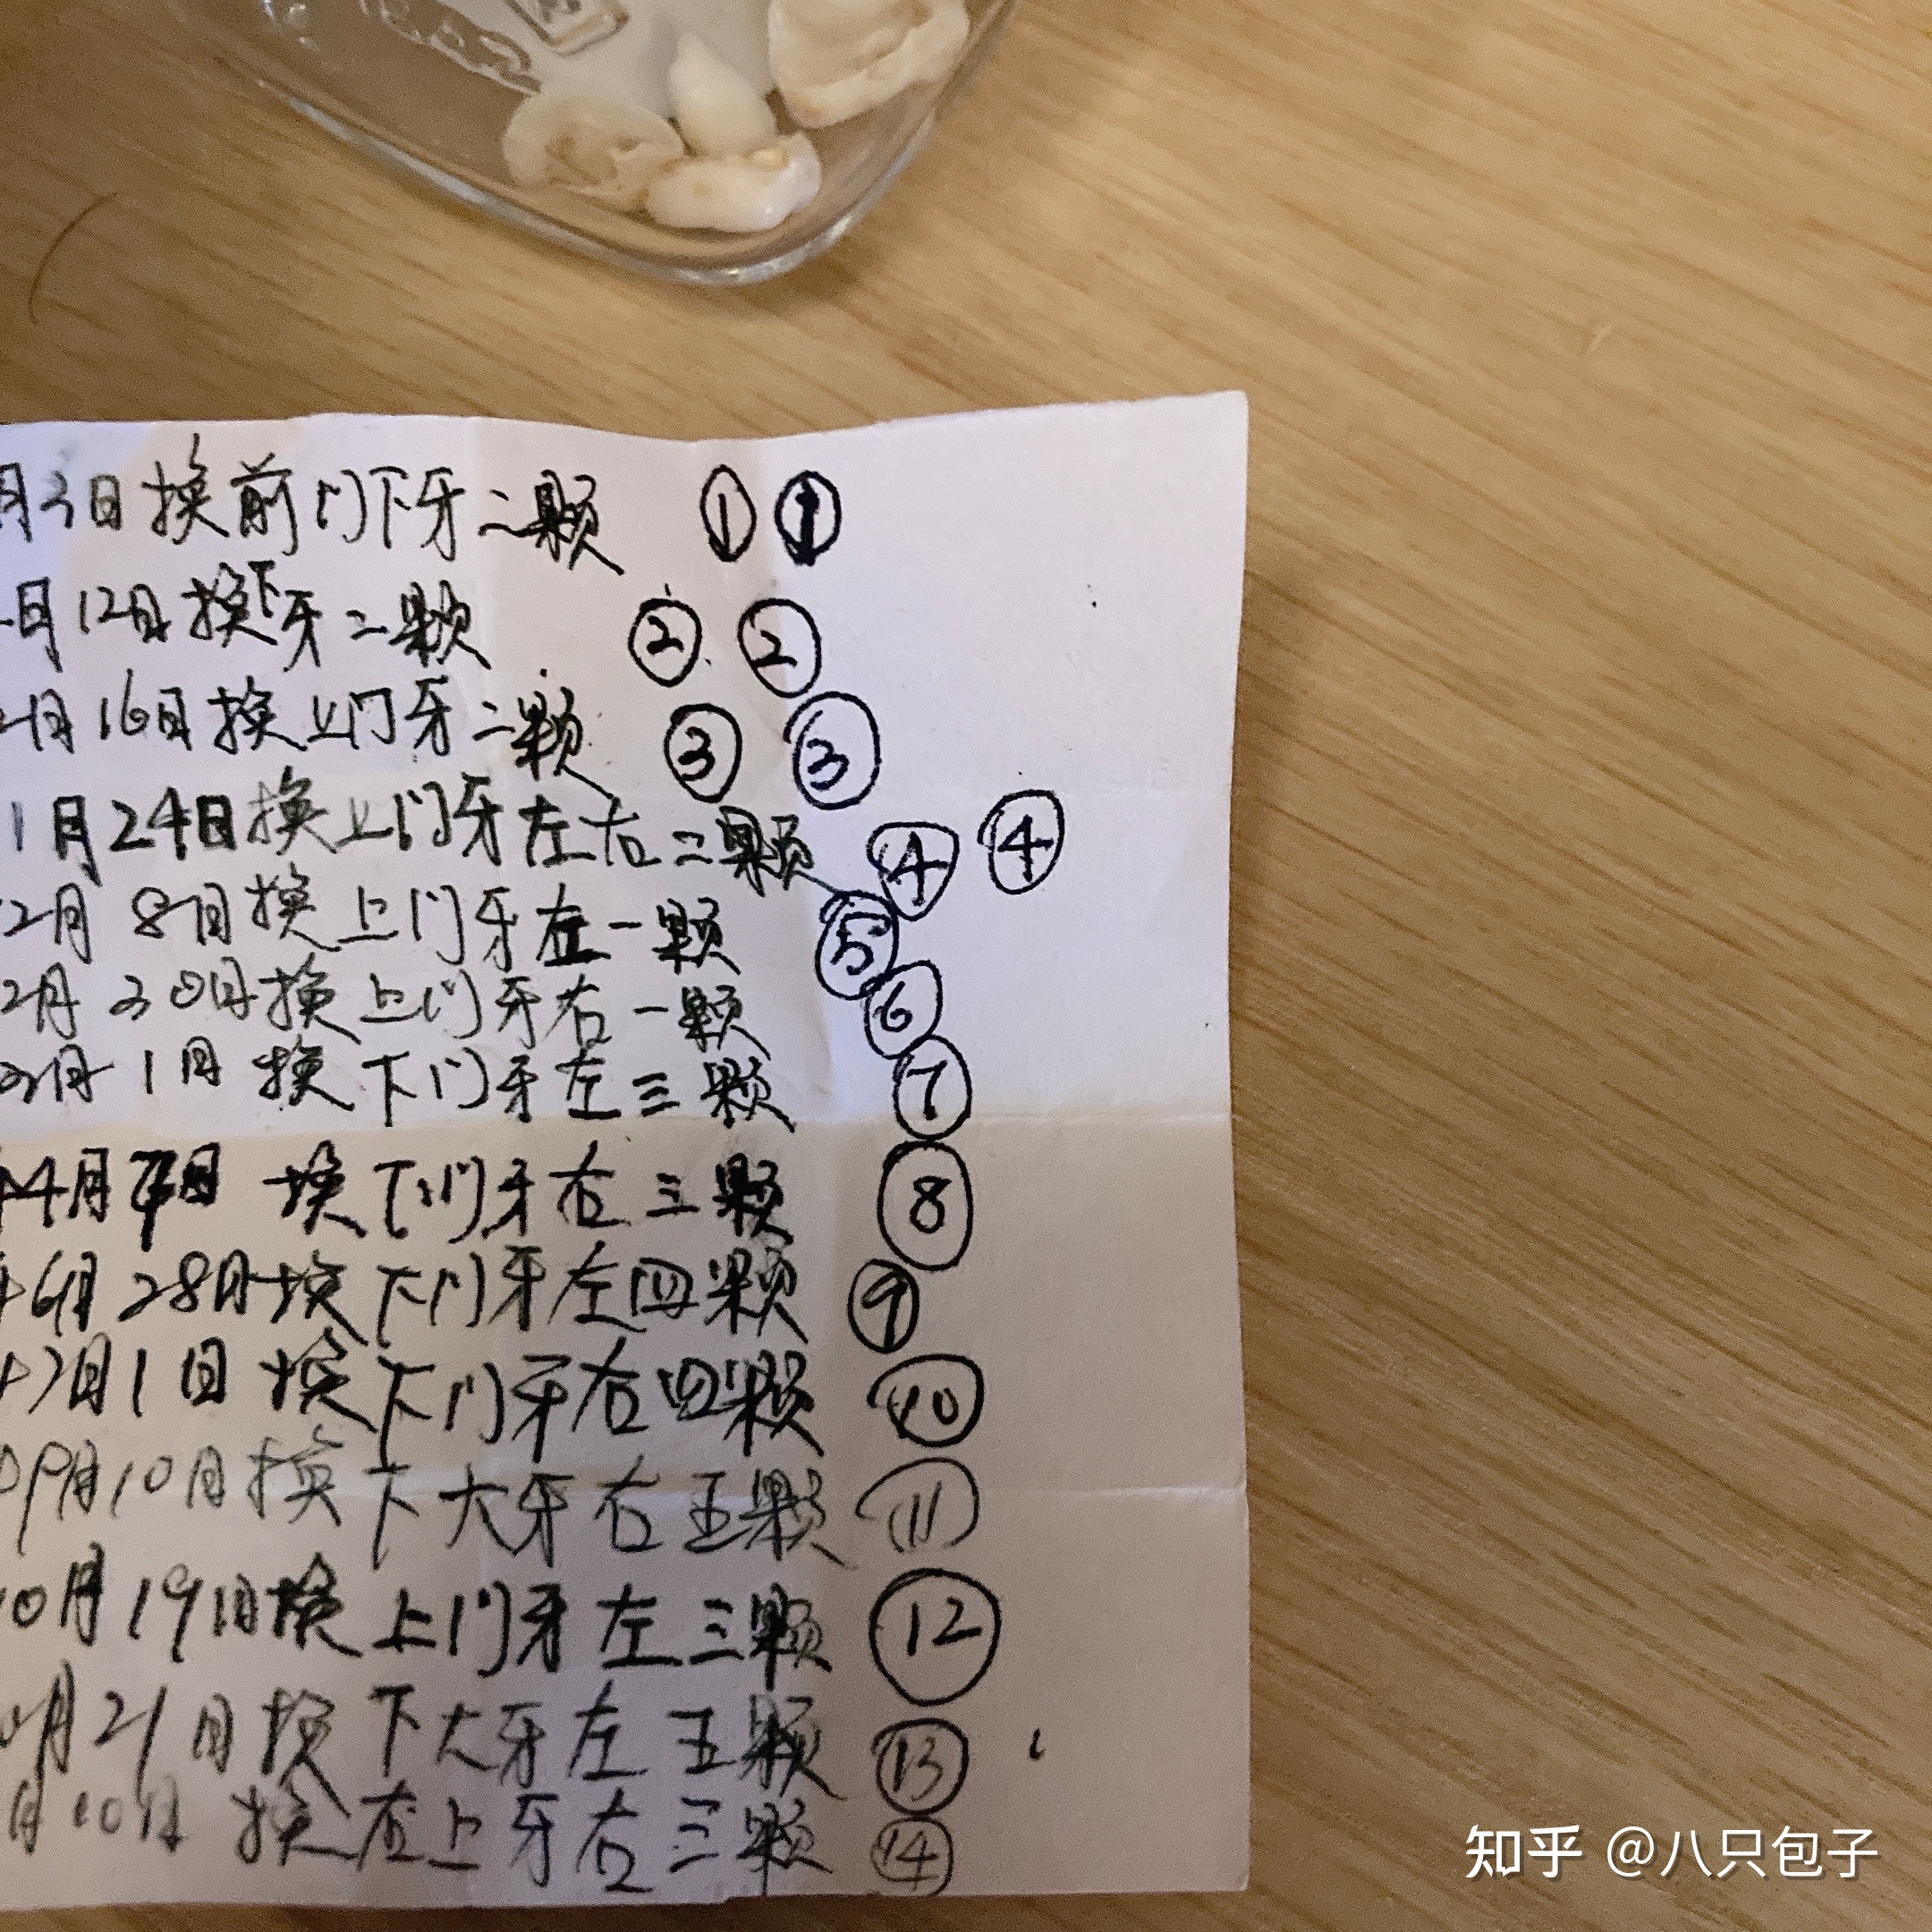 月3日换前门下牙二颗 ① ①
月12日换下牙二颗 ② ②
2月16日换上门牙二颗 ③ ③
1月24日换上门牙左右二颗 ④ ④
2月8日换上门牙左一颗 ⑤
2月30日换上门牙右一颗 ⑥
3月1日换下门牙左三颗 ⑦
4月 日换下门牙右三颗 ⑧
6月28日换下门牙左四颗 ⑨
7月1日换下门牙右四颗 ⑩
9月10日换下大牙右五颗 ⑪
10月19日换上门牙左三颗 ⑫
月21日换下大牙左五颗 ⑬
月10日换 上牙右三颗 ⑭
知乎 @八只包子